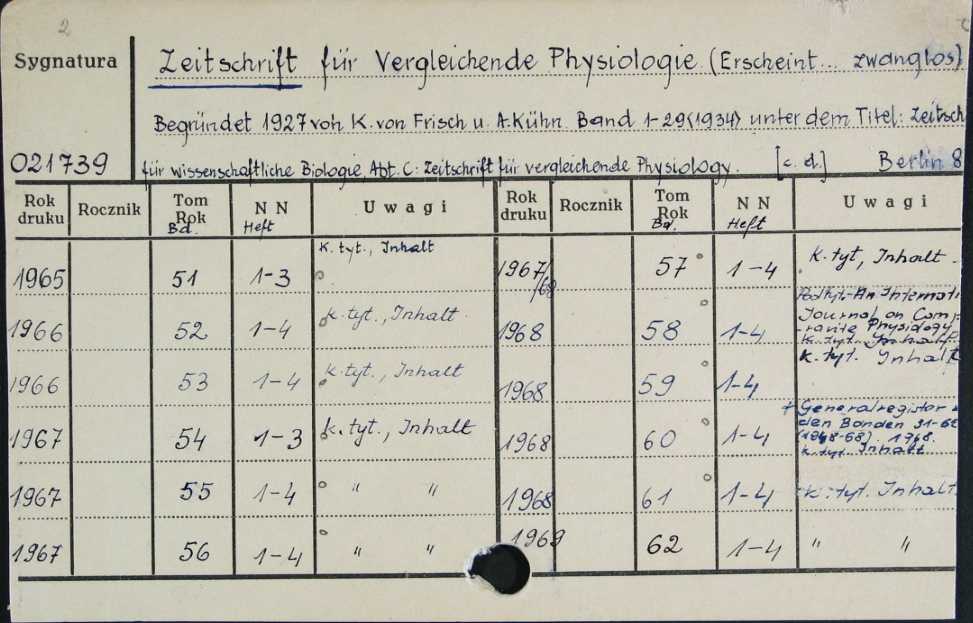 2
Sygnatura
Zeitschrift für Vergleichende Physiologie (Erscheint... zwanglos)
Begründet 1927 von K. von Frisch u. A. Kühn Band 1-29(1934) unter dem Titel: Zeitsch
021739
für wissenschaftliche Biologie, Abt. C: Zeitschrift für vergleichende Physiology. [c. d.] Berlin 8
Rok druku Rocznik Tom Rok Bd. N N Heft Uwagi Rok druku Rocznik Tom Rok Bd. N N Heft Uwagi
1965 51 1-3 K. tyt., Inhalt 1967/68 57 1-4 K. tyt, Inhalt.
1966 52 1-4 K. tyt., Inhalt. 1968 58 1-4 Podtyt. An Internati
Journal on Comp-
rative Physiology
K. tyt. Inhalt.
1966 53 1-4 K. tyt., Inhalt 1968 59 1-4 K. tyt. Inhalt
1967 54 1-3 K. tyt., Inhalt 1968 60 1-4 + Generalregistor
den Bänden 31-60
1968.
K. tyt. Inhalt
1967 55 1-4 " " 1968 61 1-4 K. tyt. Inhalt
1967 56 1-4 " " 1969 62 1-4 " "